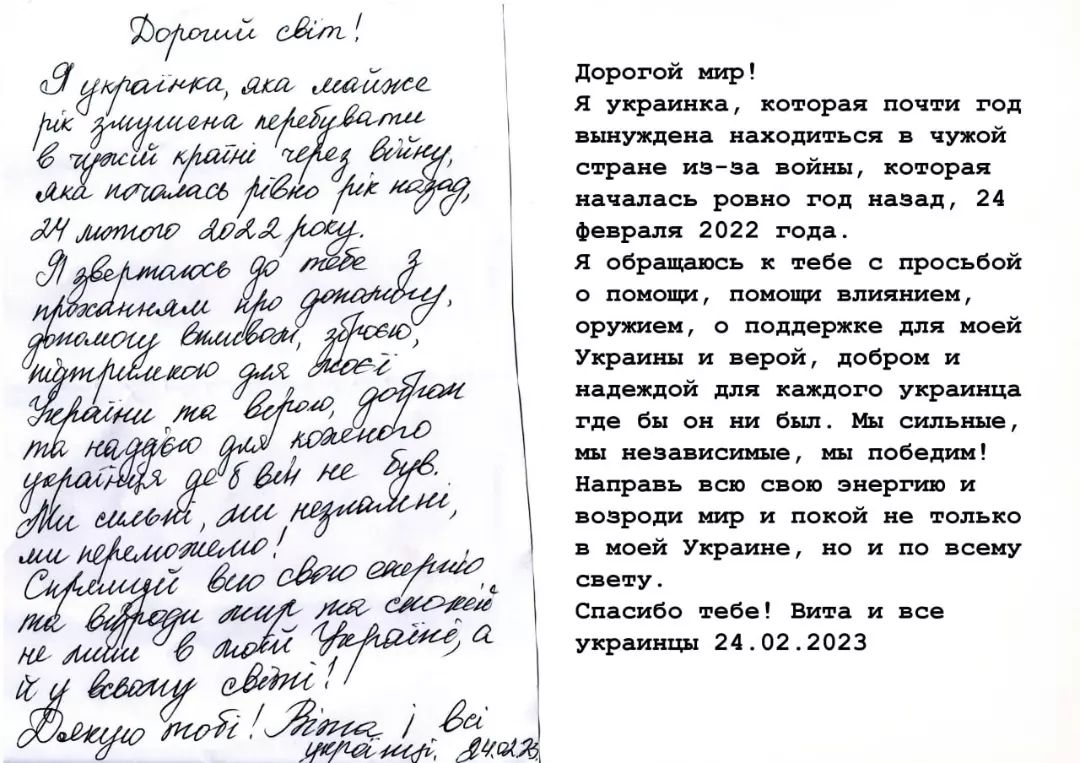 Дорогий світ!
Я українка, яка майже
рік змушена перебувати
в чужій країні через війну,
яка почалась рівно рік назад,
24 лютого 2022 року.
Я звертаюсь до тебе з
проханням про допомогу,
допомогу впливом, зброєю,
підтримкою для моєї
України та вірою, добром
та надією для кожного
українця де б він не був.
Ми сильні, ми незламні,
ми переможемо!
Спрямуй всю свою енергію
та відроди мир та спокій
не лиш в моїй Україні, а
й у всьому світі!
Дякую тобі! Віта і всі
українці. 24.02.23
Дорогой мир!
Я украинка, которая почти год
вынуждена находиться в чужой
стране из-за войны, которая
началась ровно год назад, 24
февраля 2022 года.
Я обращаюсь к тебе с просьбой
о помощи, помощи влиянием,
оружием, о поддержке для моей
Украины и верой, добром и
надеждой для каждого украинца
где бы он ни был. Мы сильные,
мы независимые, мы победим!
Направь всю свою энергию и
возроди мир и покой не только
в моей Украине, но и по всему
свету.
Спасибо тебе! Вита и все
украинцы 24.02.2023